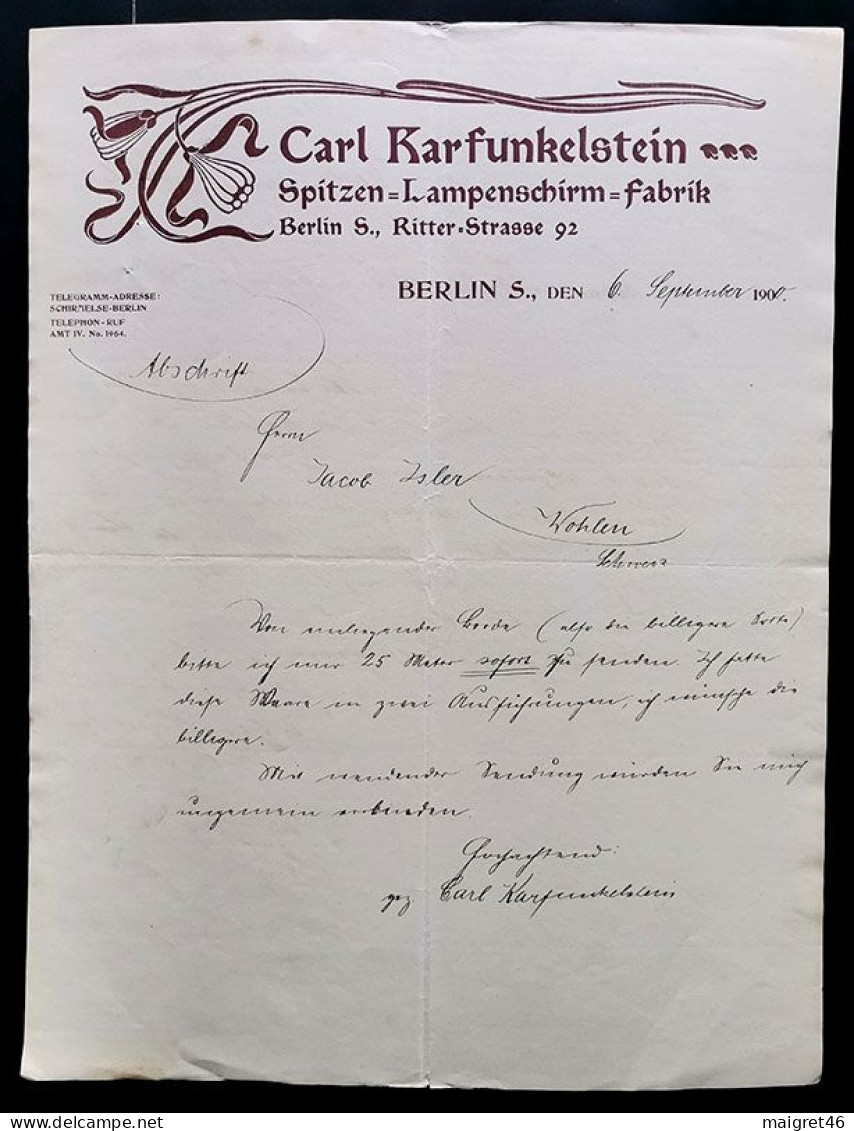 Carl Karfunkelstein
Spitzen=Lampenschirm=Fabrik
Berlin S., Ritter=Strasse 92
BERLIN S., DEN 6. September 1900.
TELEGRAMM-ADRESSE:
SCHIRMELSE-BERLIN
TELEPHON-RUF
AMT IV. No. 1964.
Abschrift
Herrn
Jacob Isler
Wohlen
Schweiz
Von anliegender Borde (also die billigere Sorte)
bitte ich mir 25 Meter sofort zu senden. Ich hatte
diese Waare in zwei Ausführungen, ich wünsche die
billigere.
Mit wendender Sendung würden Sie mich
ungemein verbinden.
Hochachtend:
gez Carl Karfunkelstein
maigret46